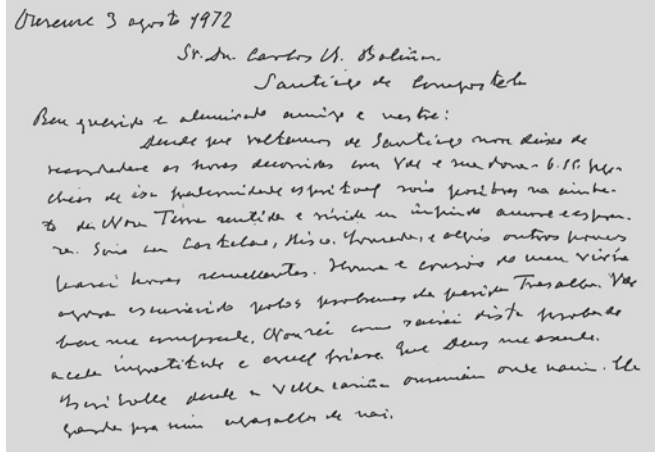 Ourense 3 agosto 1972
Sr. Dn. Carlos Baliñas
Santiago de Compostela
Ben querido e admirado amigo e mestre:
Desde que voltamos de Santiago non deixo de
recordare as horas decorridas con Vde e sua dona
cheas de isa fraternidade espritoal soio posibres no ambe-
to da Nosa Terra sentida e vivida en infindo amore e espran-
za. Soio con Castelao, Risco, Lousada, e algús outros poucos
pasei horas semellantes. Home e cousas do meu vivir
agora escurecido polos probremas da perida Trasalba. Vde
ben me comprende. Non sei como sairei dista proba de
acedo ingratitude e cruel friaxe. Que Deus me axude.
Escribolle desde a vella casiña ourensán onde nacin. Ela
garda pra min agasallos de nai.